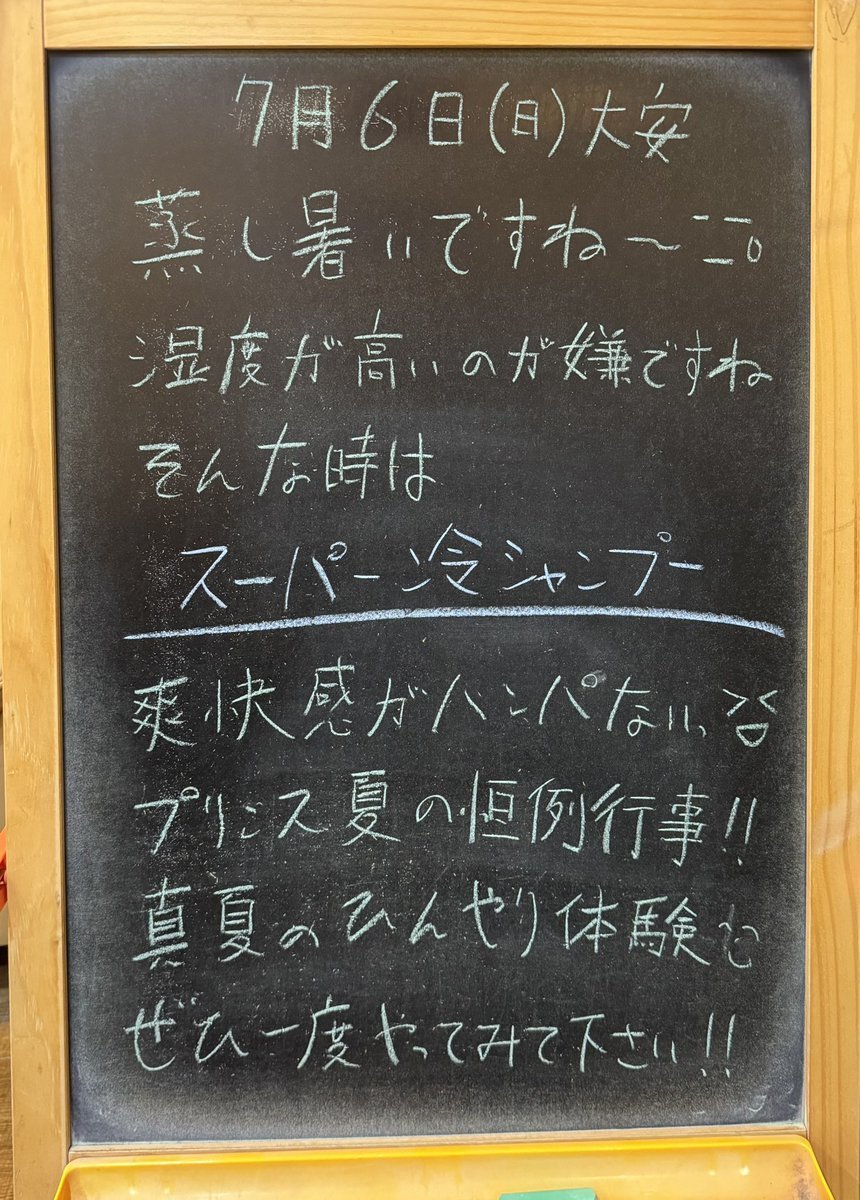 7月6日(日)大安
蒸し暑いですね〜
湿度が高いのが嫌ですね
そんな時は
スーパー冷シャンプー
爽快感がハンパない、
プリンス夏の恒例行事!!
真夏のひんやり体験
ぜひ一度やってみて下さい!!